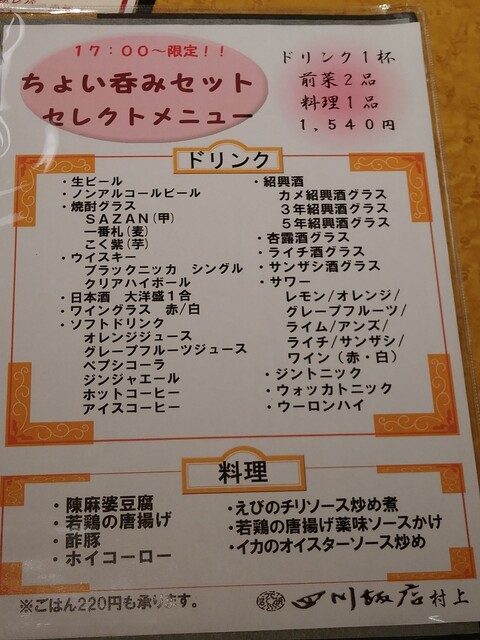 17:00～限定!!
ちょい呑みセット
セレクトメニュー
ドリンク1杯
前菜2品
料理1品
1,540円
ドリンク
・生ビール
・ノンアルコールビール
・焼酎グラス
SAZAN(甲)
一番札(麦)
こく紫(芋)
・ウイスキー
ブラックニッカ シングル
クリアハイボール
・日本酒 大洋盛1合
・ワイングラス 赤/白
・ソフトドリンク
オレンジジュース
グレープフルーツジュース
ペプシコーラ
ジンジャエール
ホットコーヒー
アイスコーヒー
・紹興酒
カメ紹興酒グラス
3年紹興酒グラス
5年紹興酒グラス
・杏露酒グラス
・ライチ酒グラス
・サンザシ酒グラス
・サワー
レモン/オレンジ/
グレープフルーツ/
ライム/アンズ/
ライチ/サンザシ/
ワイン(赤・白)
・ジントニック
・ウォッカトニック
・ウーロンハイ
料理
・陳麻婆豆腐
・若鶏の唐揚げ
・酢豚
・ホイコーロー
・えびのチリソース炒め煮
・若鶏の唐揚げ薬味ソースかけ
・イカのオイスターソース炒め
※ごはん220円も承ります。
四川飯店 村上